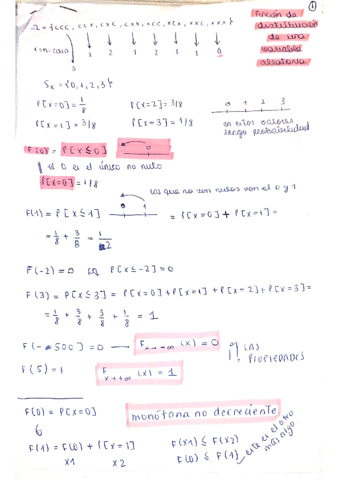 ①
Función de distribución de una variable aleatoria
Ω = {ccc, ccx, cxc, cxx, xcc, xcx, xxc, xxx}
x = nº cara
3 2 2 1 2 1 1 0
Sx = {0, 1, 2, 3}
P[X=0] = 1/8 P[X=2] = 3/8
P[X=1] = 3/8 P[X=3] = 1/8
0 1 2 3
en estos valores tengo probabilidad
F(0) = P[X≤0] 0
si 0 es el único no nulo
P[X=0] = 1/8
los que no son nulos son el 0 y 1
F(1) = P[X≤1] 0 1 = P[X=0] + P[X=1] =
= 1/8 + 3/8 = 1/2
F(-2) = 0 P[X≤-2] = 0
F(3) = P[X≤3] = P[X=0] + P[X=1] + P[X=2] + P[X=3] =
= 1/8 + 3/8 + 3/8 + 1/8 = 1
F(-500) = 0 — F x→-∞ (x) = 0
LAS PROPIEDADES
F(5) = 1 F x→+∞ (x) = 1
F(0) = P[X=0] monótona no decreciente
F(1) = F(0) + P[X=1] F(x1) ≤ F(x2)
x1 x2 F(0) ≤ F(1) este es el otro más algo